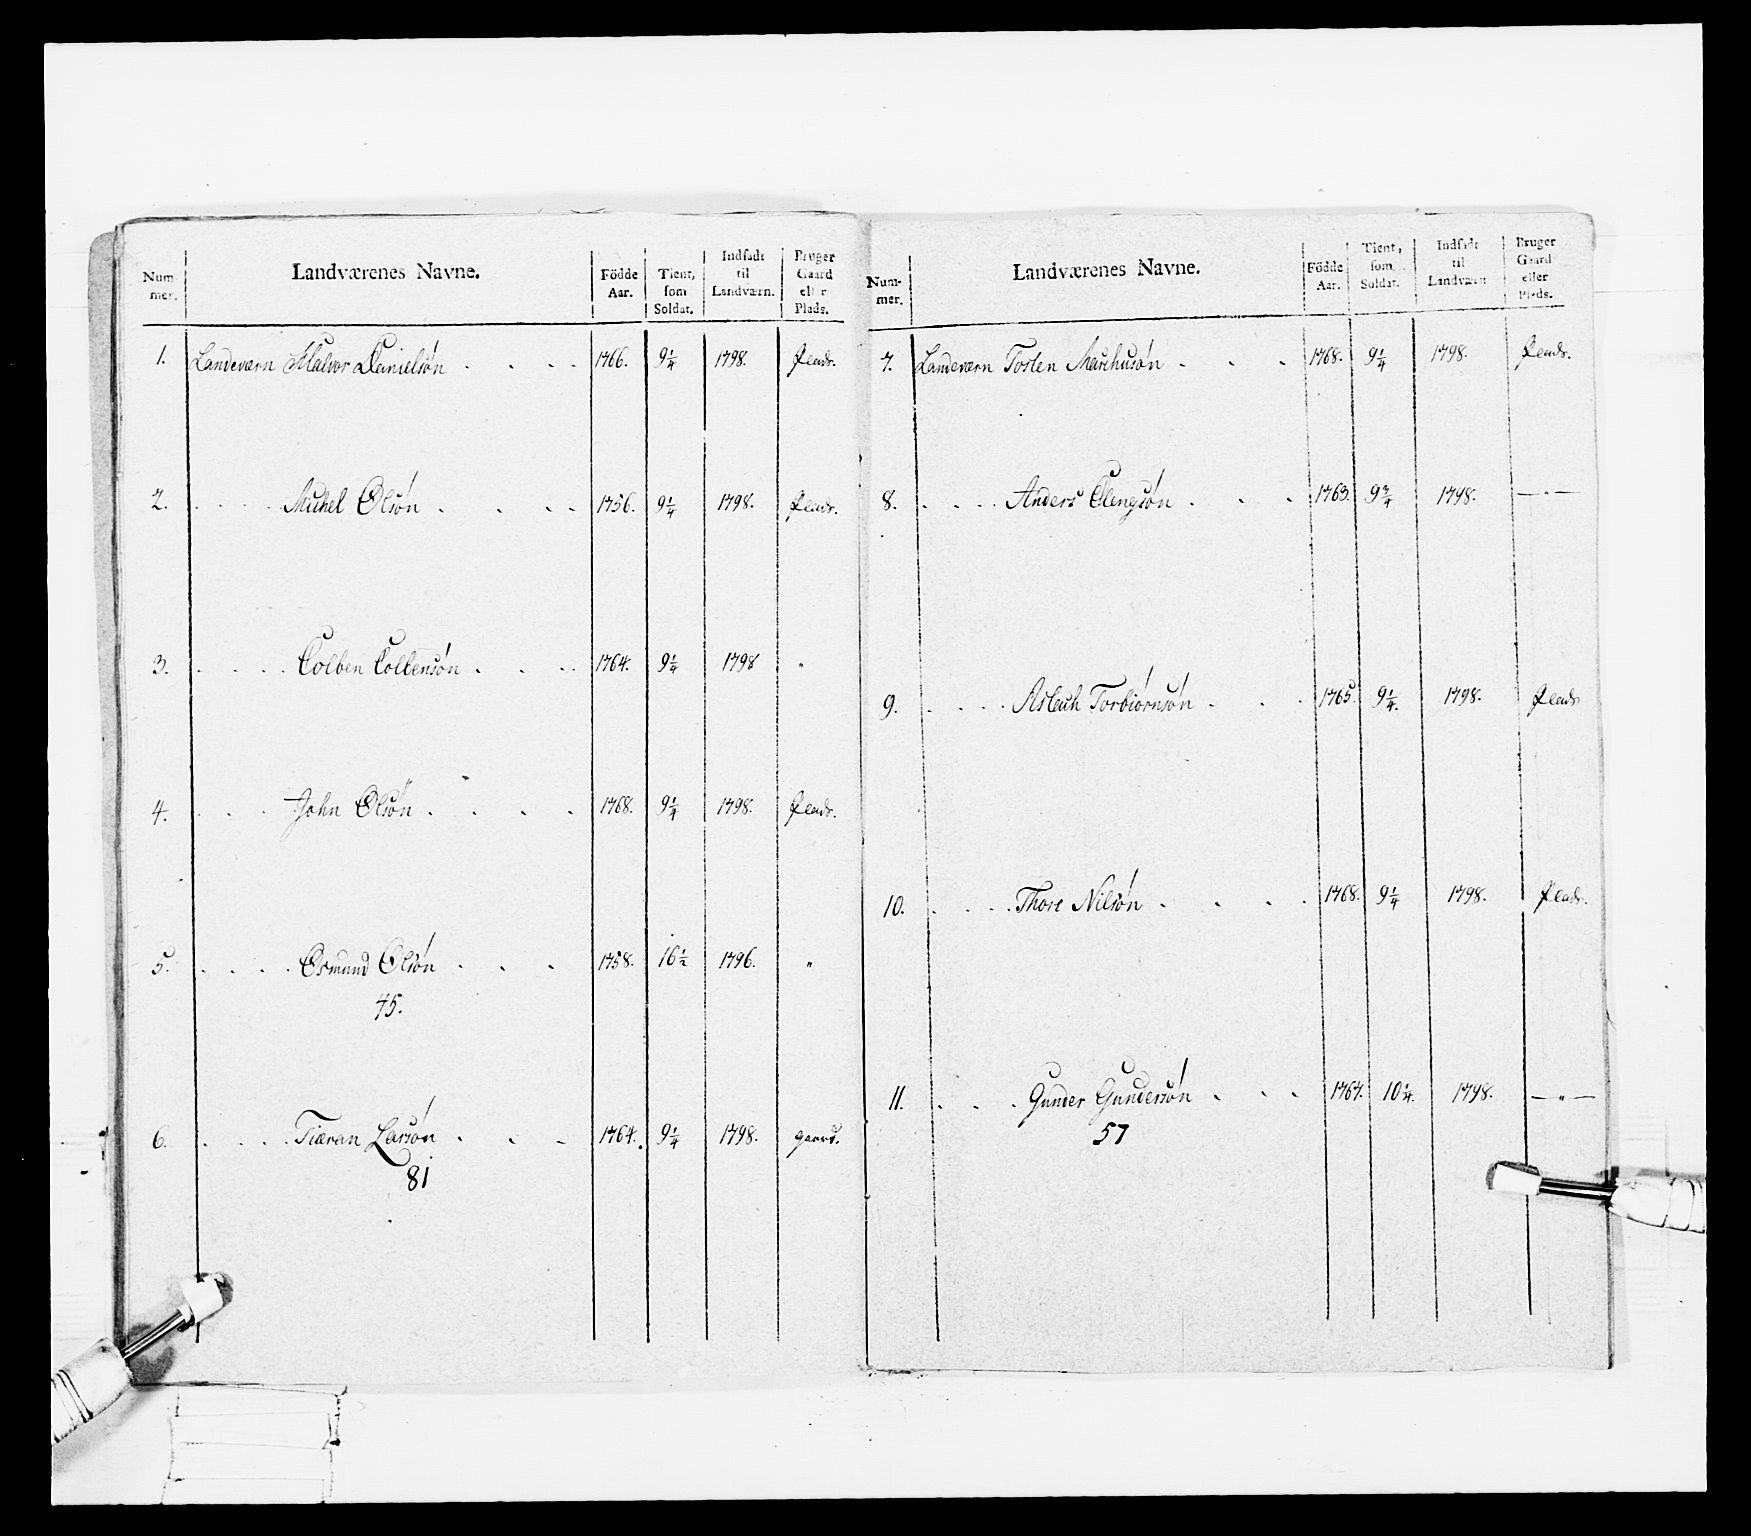 Num-
mer.
Landværenes Navne.
Födde
Aar.
Tient,
som
Soldat.
Indfadt
til
Landværn.
Bruger
Gaard
eller
Plads.
1. Landeværn Halvor Danielsøn . . . . 1766. 9 1/4 1798. Plads.
2. . . . . Michel Olsøn . . . . 1756. 9 1/4 1798. Plads.
3. . . . . Tolben Tolbensøn . . . . 1764. 9 1/4 1798 "
4. . . . John Olsøn . . . . 1768. 9 1/4 1798. Plads.
5. . . . . Osmund Olsøn . . . 1758. 16 1/2 1796. "
45.
6. . . . . Tiæran Larsøn . . . 1764. 9 1/4 1798. gaard.
81
Num-
mer.
Landværenes Navne.
Födde
Aar.
Tient,
som
Soldat.
Indfadt
til
Landværn
Bruger
Gaard
eller
Plads.
7. Landeværn Tosten Marchusøn . . . 1768. 9 1/4 1798. Plads.
8. . . . . Anders Clengsøn . . . 1763. 9 3/4 1798. — " —
9. . . . . Aslach Torbiørnsøn . . . 1765. 9 1/4. 1798. Plads
10. . . . . Thore Nilsøn . . . . 1768. 9 1/4 1798. Plads.
11. . . . Gunder Gundersøn . . . 1767. 10 1/4. 1798. — " —
57